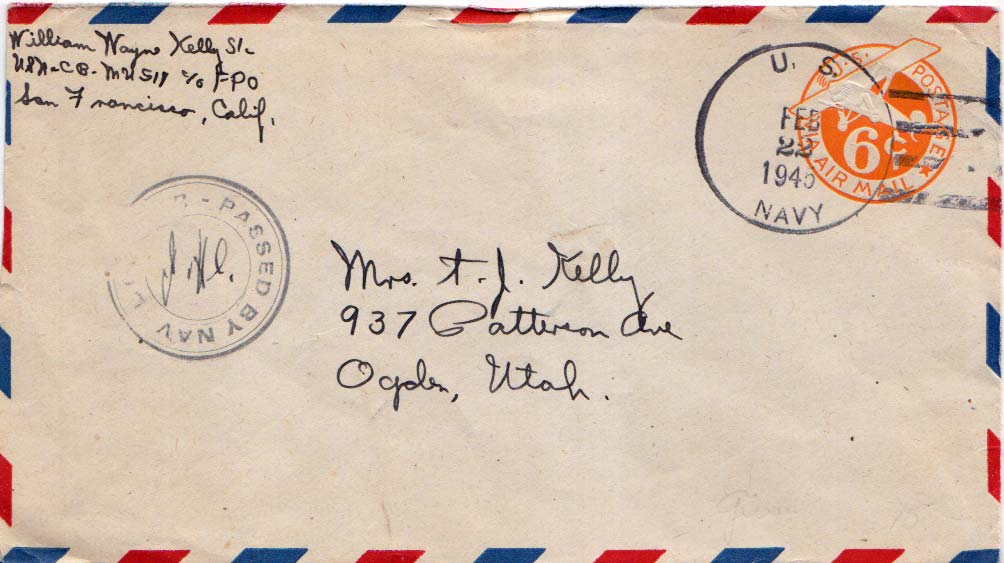 William Wayne Kelly S1-
USN-CB-MU 511 c/o FPO
San Francisco, Calif.
U. S.
FEB
22
1945
NAVY
U. S. POSTAGE
VIA AIR MAIL
6¢
PASSED BY NAV
Mrs. A. J. Kelly
937 Patterson Ave
Ogden, Utah.